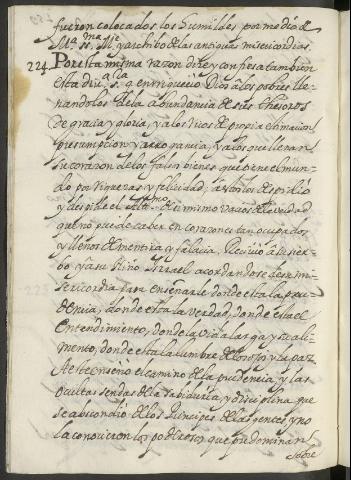 fueron colocados los humildes por medio de
Ma. ssma. Me. y archibo de las antiguas misericordias.
224. Por esta misma razon dize y confiesa tambien
esta diva. sa. q enrriqueciò Dios à los pobres lle-
nandolos de la abundancia de sus thesoros
de gracia y gloria, y a los ricos de propia estimacion
presumpcion y arrogancia, y a los que llenan
su corazon de los falsos bienes que tiene el mun-
do por riqueza y felicidad; à estos los despidiò
y despide el Altmo. de si mismo vacios de la verdad
que no puede caber en corazones tan ocupados
y llenos de mentira y falacia. Reciviò à su sier-
bo y à su Niño Israel acordandose de su mi-
sericordia para enseñarle donde esta la pru-
dencia, donde esta la verdad, donde esta el
entendimiento, donde la vida larga y su ali-
mento, donde esta la lumbre de los ojos y la paz
A este enseñò el camino de la prudencia, y las
ocultas sendas de la sabiduria, y disciplina que
se abscondiò de los Principes de las gentes y no
la conocieron los poderosos que predominan
sobre